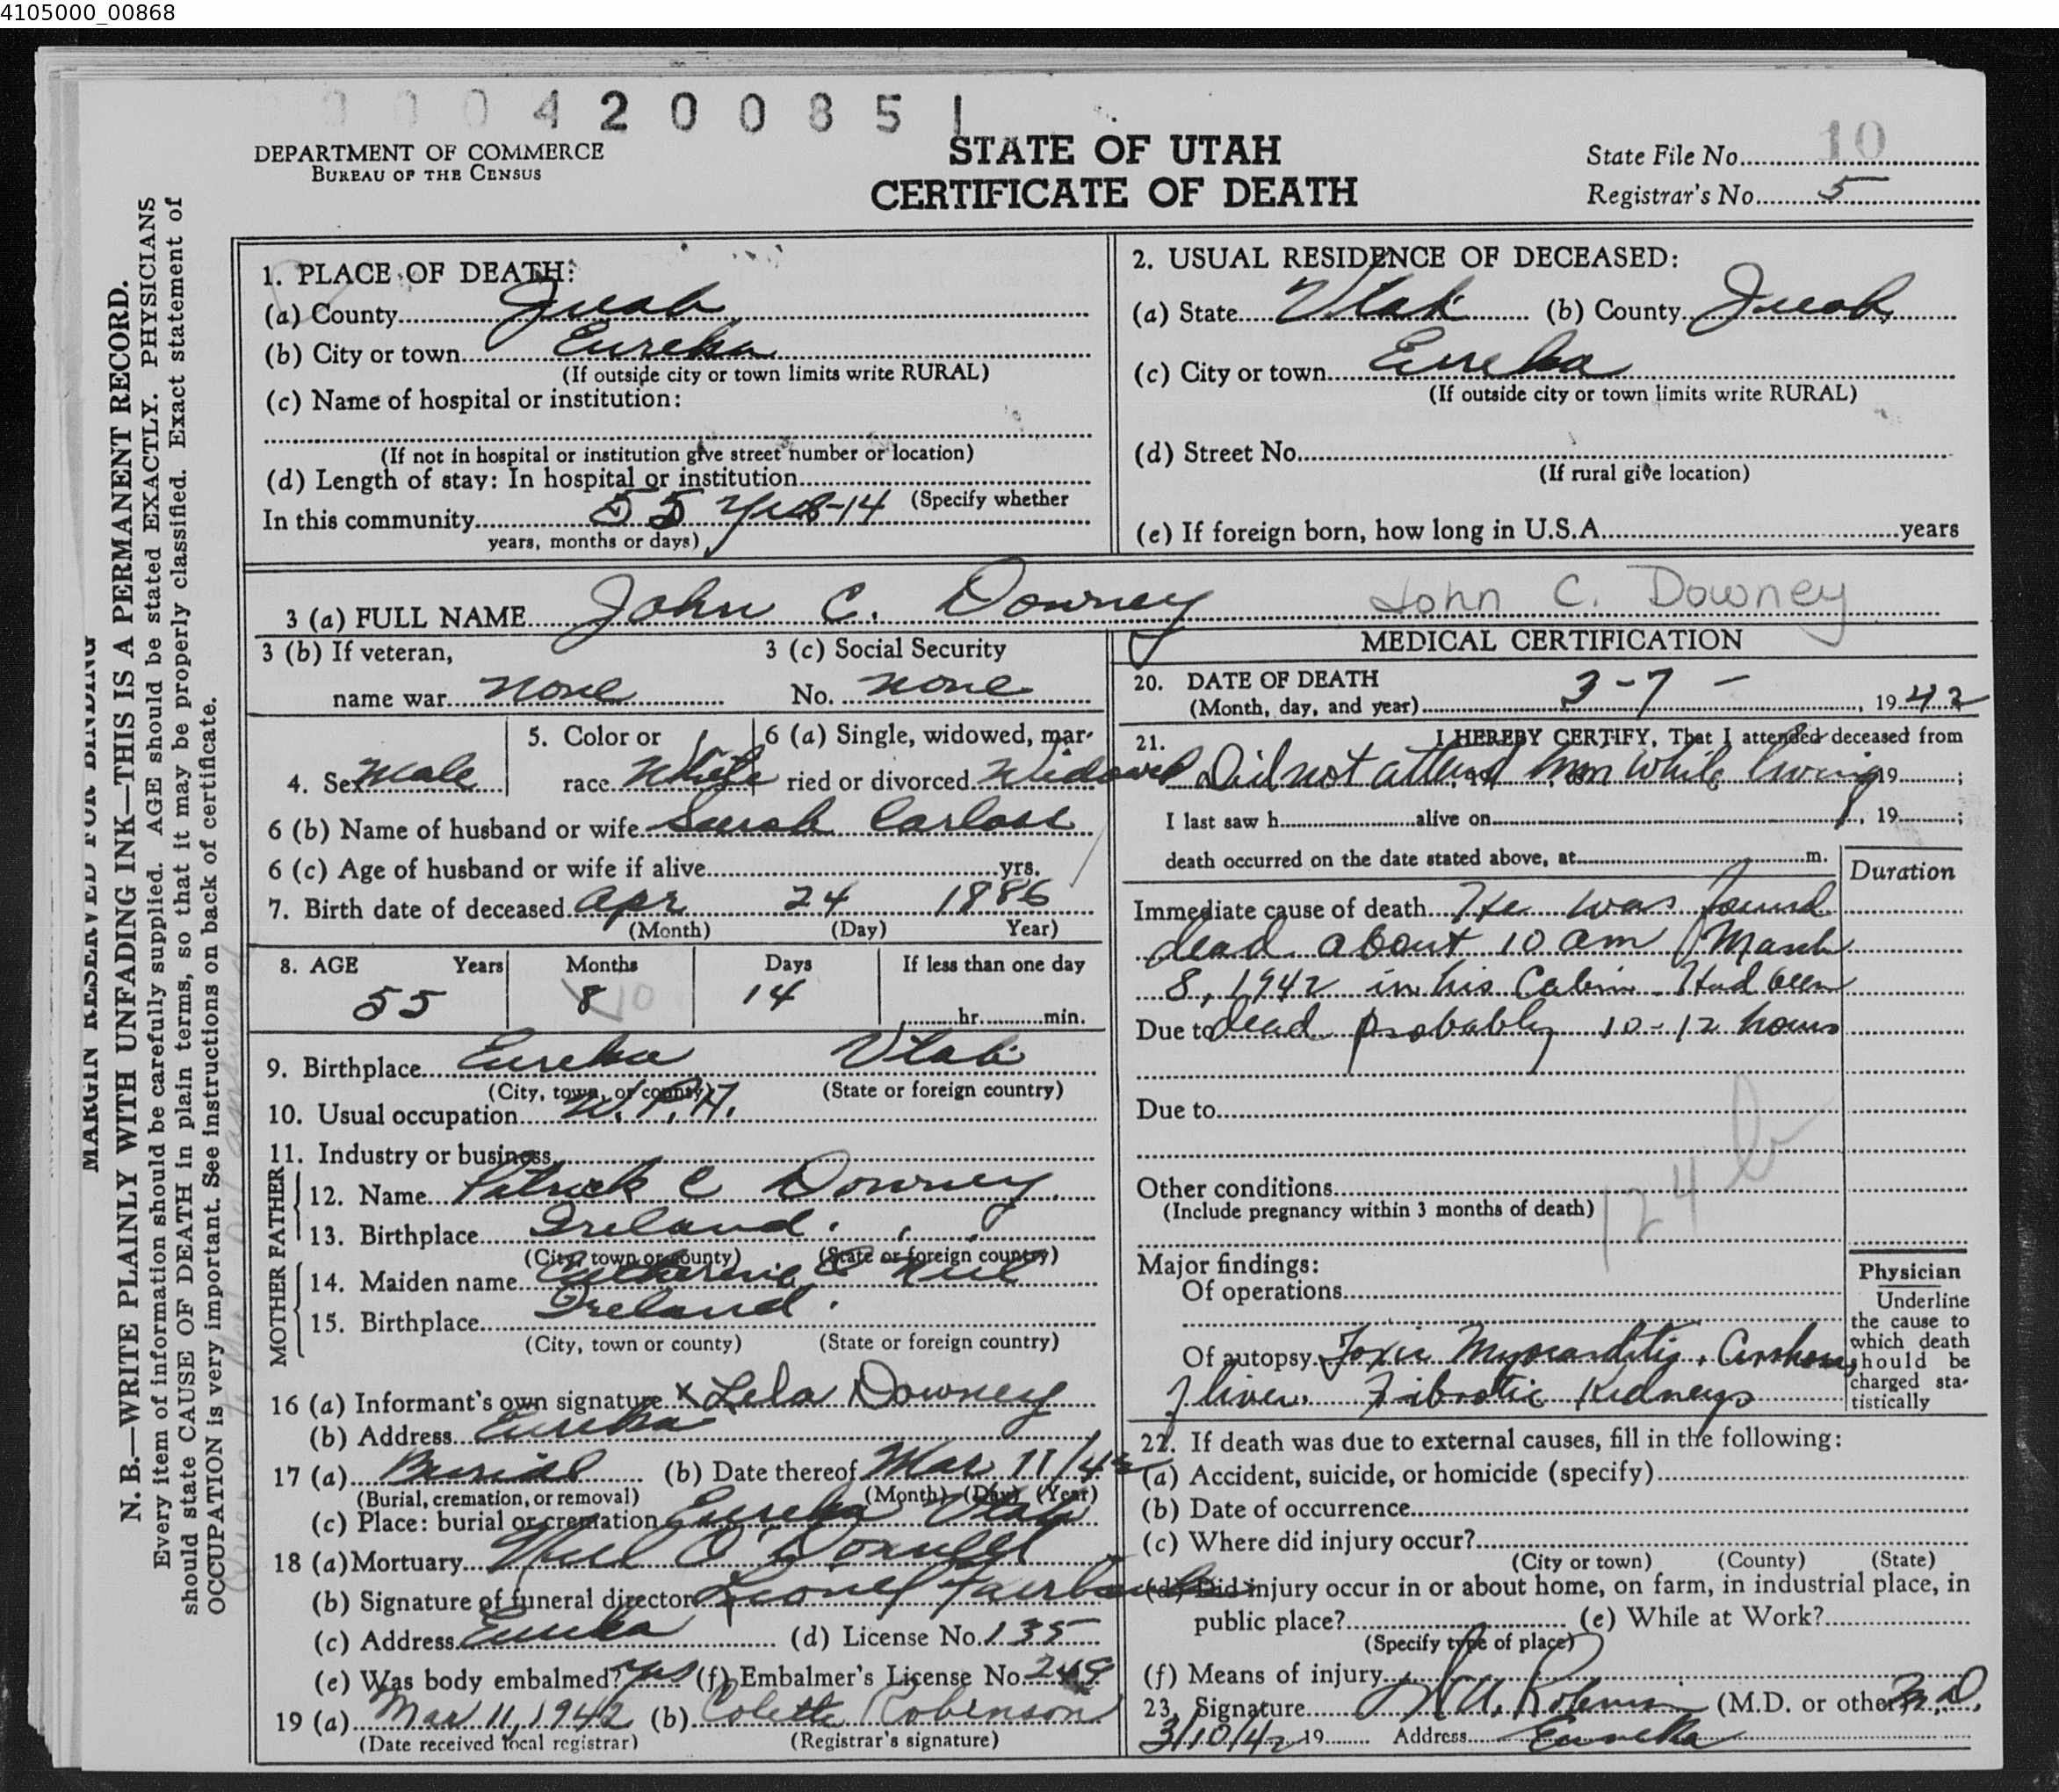 4105000_00868
0 0 0 4 2 0 0 8 5 1
DEPARTMENT OF COMMERCE
BUREAU OF THE CENSUS
STATE OF UTAH
CERTIFICATE OF DEATH
State File No. 10
Registrar's No. 5
MARGIN RESERVED FOR BINDING
N. B.—WRITE PLAINLY WITH UNFADING INK—THIS IS A PERMANENT RECORD.
Every item of information should be carefully supplied. AGE should be stated EXACTLY. PHYSICIANS
should state CAUSE OF DEATH in plain terms, so that it may be properly classified. Exact statement of
OCCUPATION is very important. See instructions on back of certificate.
1. PLACE OF DEATH:
(a) County Juab
(b) City or town Eureka
(If outside city or town limits write RURAL)
(c) Name of hospital or institution:
(If not in hospital or institution give street number or location)
(d) Length of stay: In hospital or institution
(Specify whether
In this community 55 yrs-14
years, months or days)
2. USUAL RESIDENCE OF DECEASED:
(a) State Utah (b) County Juab
(c) City or town Eureka
(If outside city or town limits write RURAL)
(d) Street No.
(If rural give location)
(e) If foreign born, how long in U.S.A. years
3 (a) FULL NAME John C. Downey John C. Downey
3 (b) If veteran,
name war none
3 (c) Social Security
No. none
4. Sex Male
5. Color or
race White
6 (a) Single, widowed, mar-
ried or divorced Widowed
6 (b) Name of husband or wife Sarah
6 (c) Age of husband or wife if alive yrs.
7. Birth date of deceased Apr 24 1886
(Month) (Day) Year)
8. AGE Years Months Days If less than one day
55 8 10 14
hr. min.
9. Birthplace Eureka Utah
(City, town, or county) (State or foreign country)
10. Usual occupation
11. Industry or business
FATHER
12. Name Patrick C Downey
13. Birthplace Ireland
(City, town or county) (State or foreign country)
MOTHER
14. Maiden name Catherine
15. Birthplace Ireland
(City, town or county) (State or foreign country)
16 (a) Informant's own signature x Lela Downey
(b) Address Eureka
17 (a) Burial (b) Date thereof Mar 11/42
(Burial, cremation, or removal) (Month) (Day) (Year)
(c) Place: burial or cremation Eureka Utah
18 (a) Mortuary O'Donnell
(b) Signature of funeral director Lionel Fairbanks
(c) Address Eureka (d) License No. 135
(e) Was body embalmed? yes (f) Embalmer's License No. 249
19 (a) Mar 11, 1942 (b) Colette Robinson
(Date received local registrar) (Registrar's signature)
MEDICAL CERTIFICATION
20. DATE OF DEATH
(Month, day, and year) 3-7- , 1942
21. I HEREBY CERTIFY, That I attended deceased from
Did not attend him while living 19 ;
I last saw h alive on , 19 ;
death occurred on the date stated above, at m.
Duration
Immediate cause of death He was found
dead about 10 am March
8, 1942 in his Cabin. Had been
Due to dead probably 10-12 hours
Due to
Other conditions
(Include pregnancy within 3 months of death)
124 b
Major findings:
Of operations
Of autopsy Toxic Myocarditis, Cirrhosis
of liver. Fibrotic Kidneys
Physician
Underline
the cause to
which death
should be
charged sta-
tistically
22. If death was due to external causes, fill in the following:
(a) Accident, suicide, or homicide (specify)
(b) Date of occurrence
(c) Where did injury occur?
(City or town) (County) (State)
(d) Did injury occur in or about home, on farm, in industrial place, in
public place? (e) While at Work?
(Specify type of place)
(f) Means of injury
23. Signature (M.D. or other) M.D.
3/10/42 19 Address Eureka